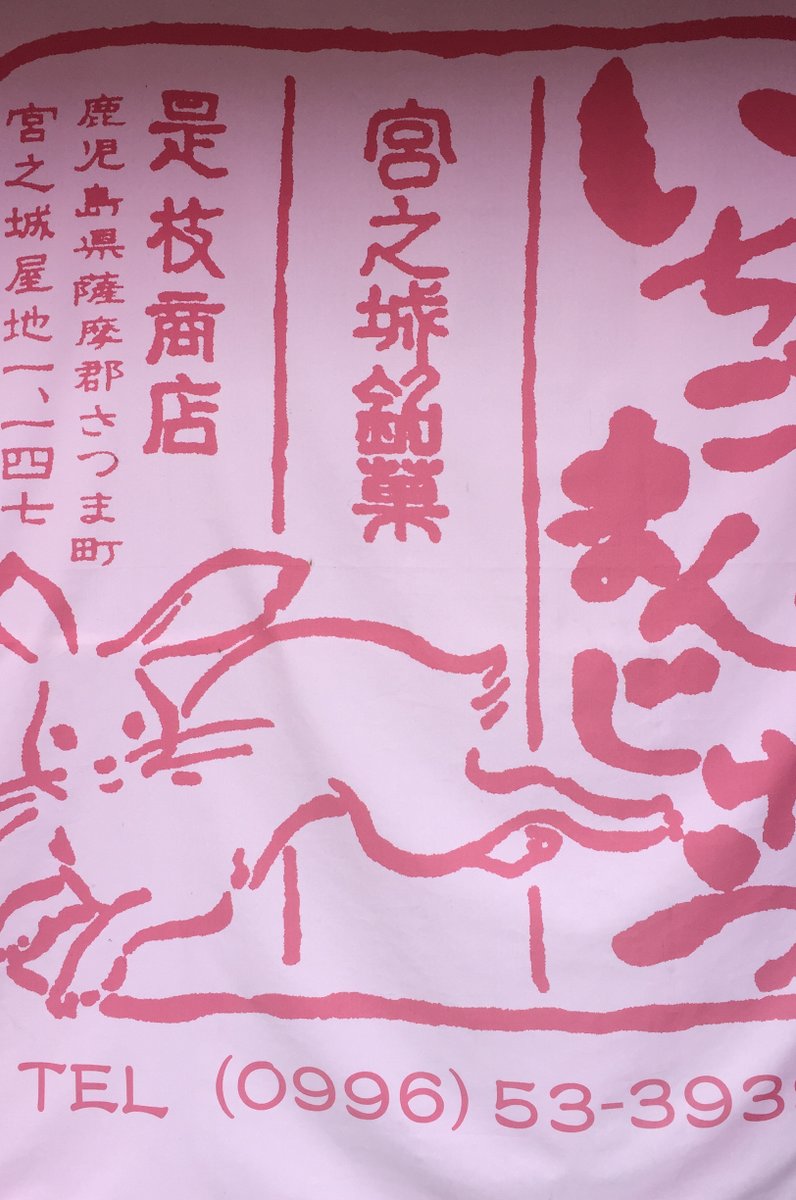 いちごまんじゅう
宮之城銘菓
是枝商店
鹿児島県薩摩郡さつま町
宮之城屋地一、一四七
TEL (0996) 53-393